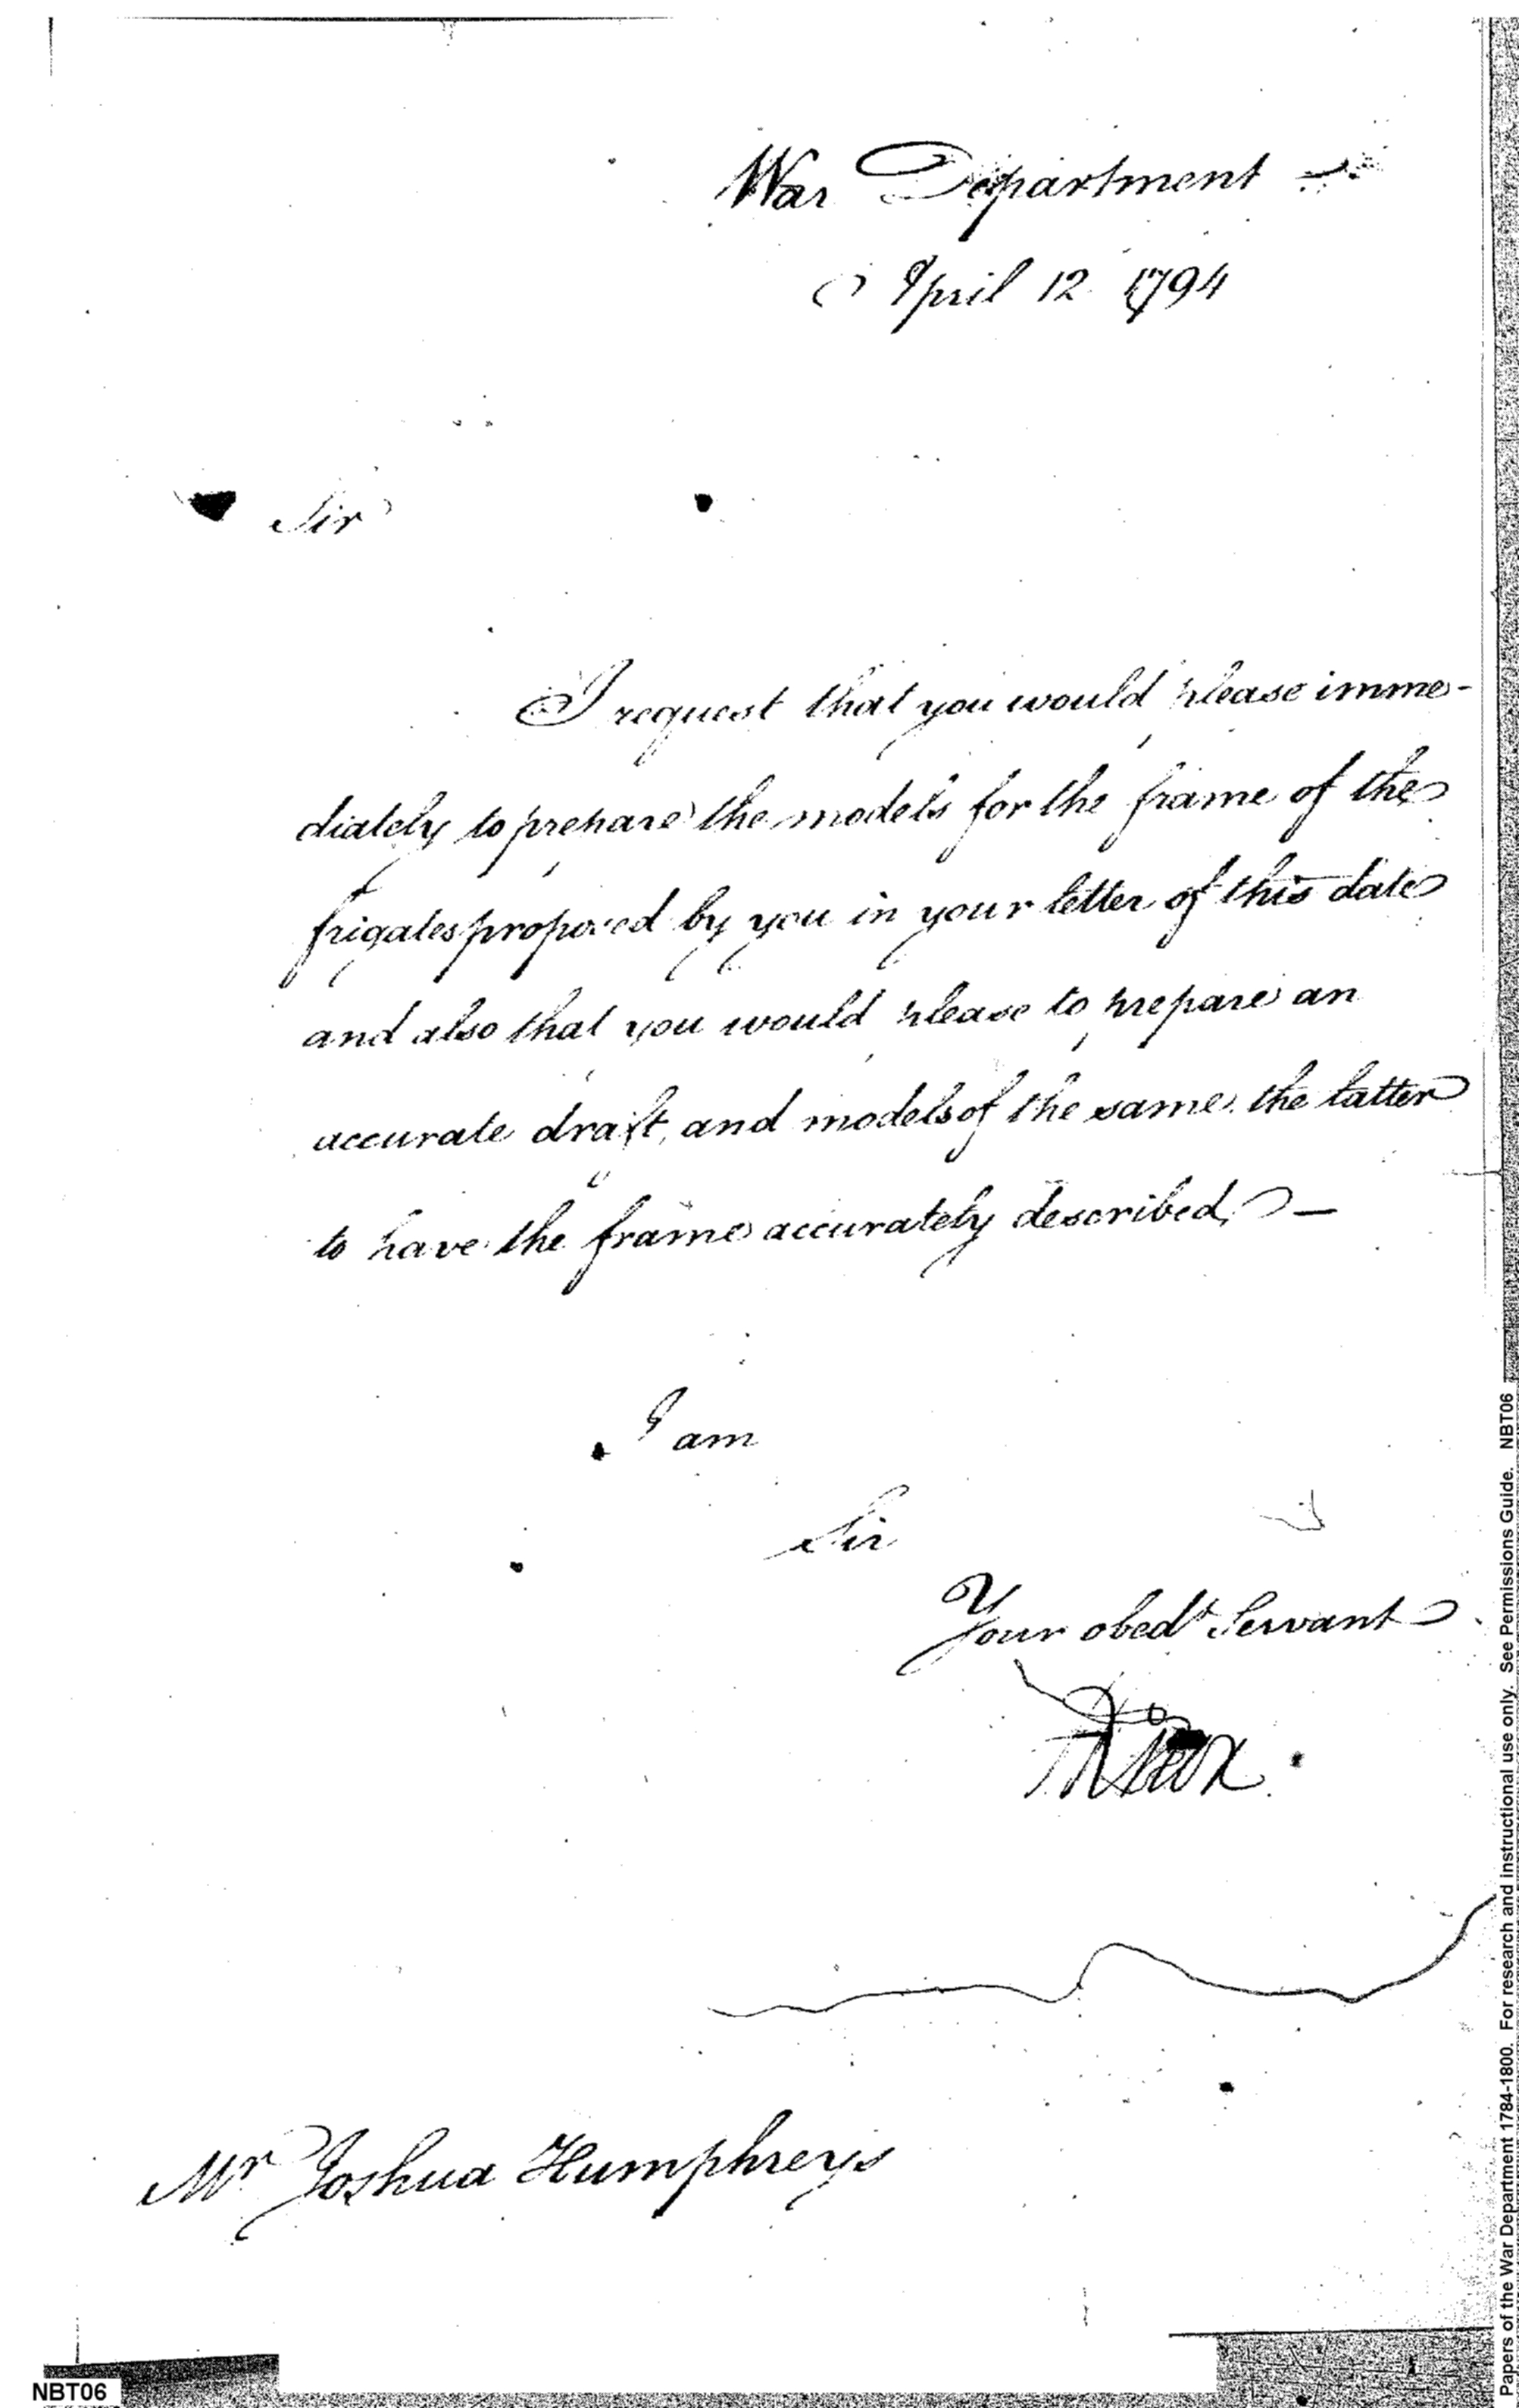 War Department
April 12 1794
Sir
I request that you would please imme-
diately to prepare the models for the frame of the
frigates proposed by you in your letter of this date
and also that you would please to prepare an
accurate draft, and models of the same the latter
to have the frame accurately described, —
I am
Sir
Your obedt Servant
HKnox
Mr Joshua Humphreys
NBT06
Papers of the War Department 1784-1800. For research and instructional use only. See Permissions Guide. NBT06